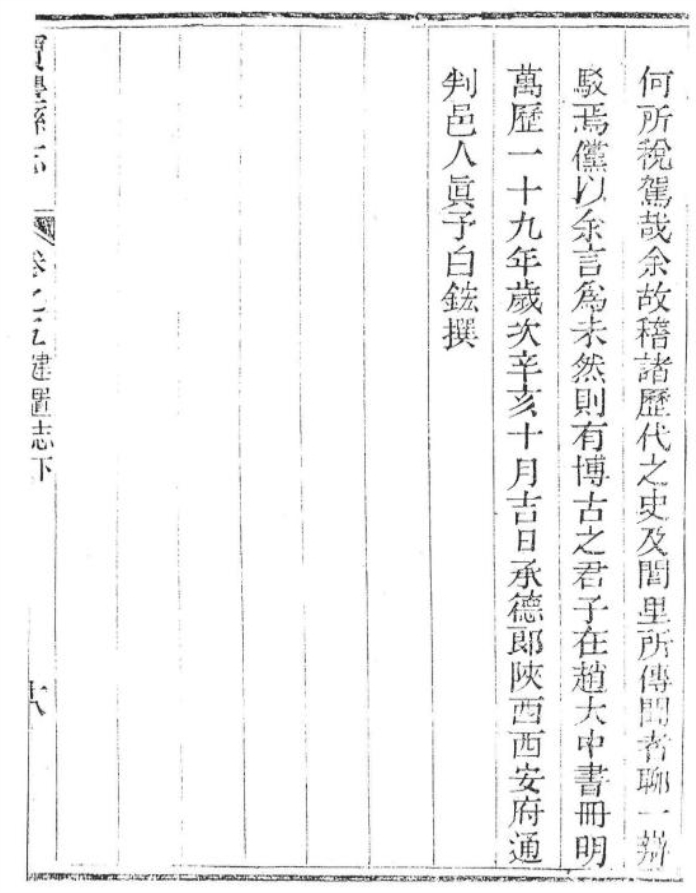 何所稅駕哉余故稽諸歷代之史及閭里所傳聞者聊一辯
駁焉儻以余言爲未然則有博古之君子在趙大中書冊明
萬歷一十九年歲次辛亥十月吉日承德郎陝西西安府通
判邑人眞予白鋐撰
縣志 卷之五建置志下
十八